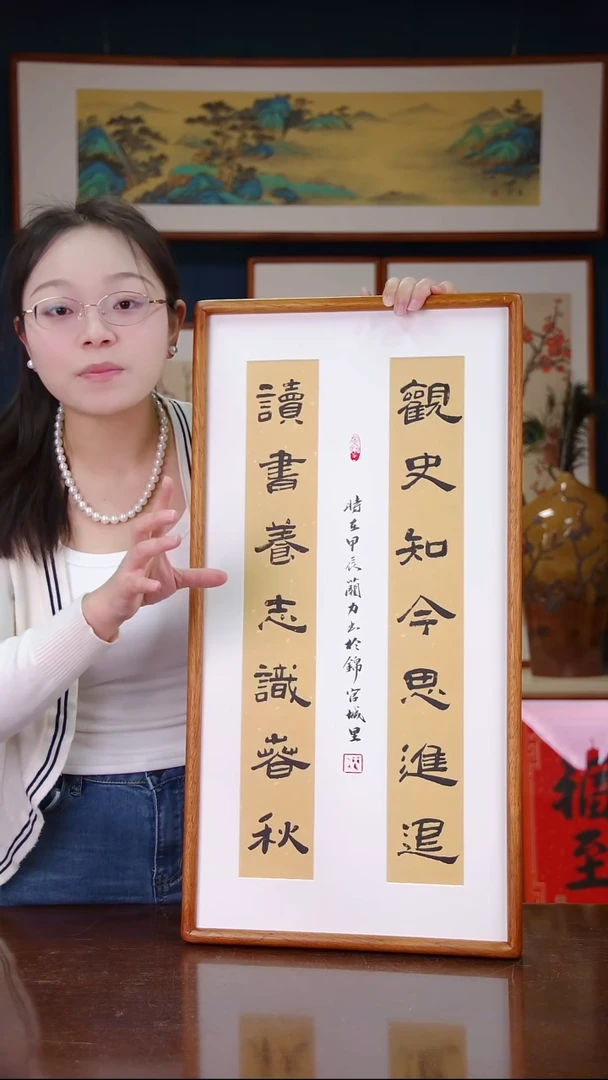 觀史知今思進退
讀書養志識春秋
時在甲辰蘭力書於錦官城里